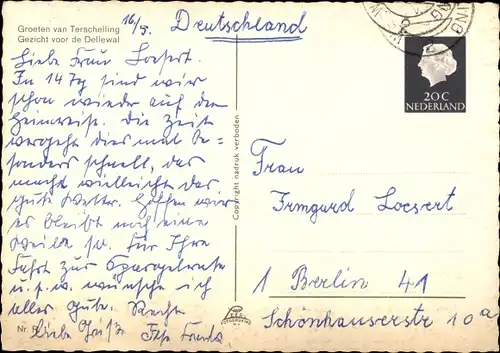 Groeten van Terschelling
Gezicht voor de Dellewal
16/9.
Deutschland
Liebe Frau Loesert.
In 14 Tg sind wir
schon wieder auf der
Heimreise. Die Zeit
vergeht dies mal be=
sonders schnell, das
macht vielleicht das
gute Wetter. Hoffen wir
es bleibt noch eine
Weile so. Für Ihre
Fahrt zur
u.s.w. wünsche ich
alles Gute. Recht
liebe Grüße Ihre
Nr.
Copyright nadruk verboden
20 C
NEDERLAND
Frau
Irmgard Loesert
1 Berlin 41
Schönhauserstr 10a